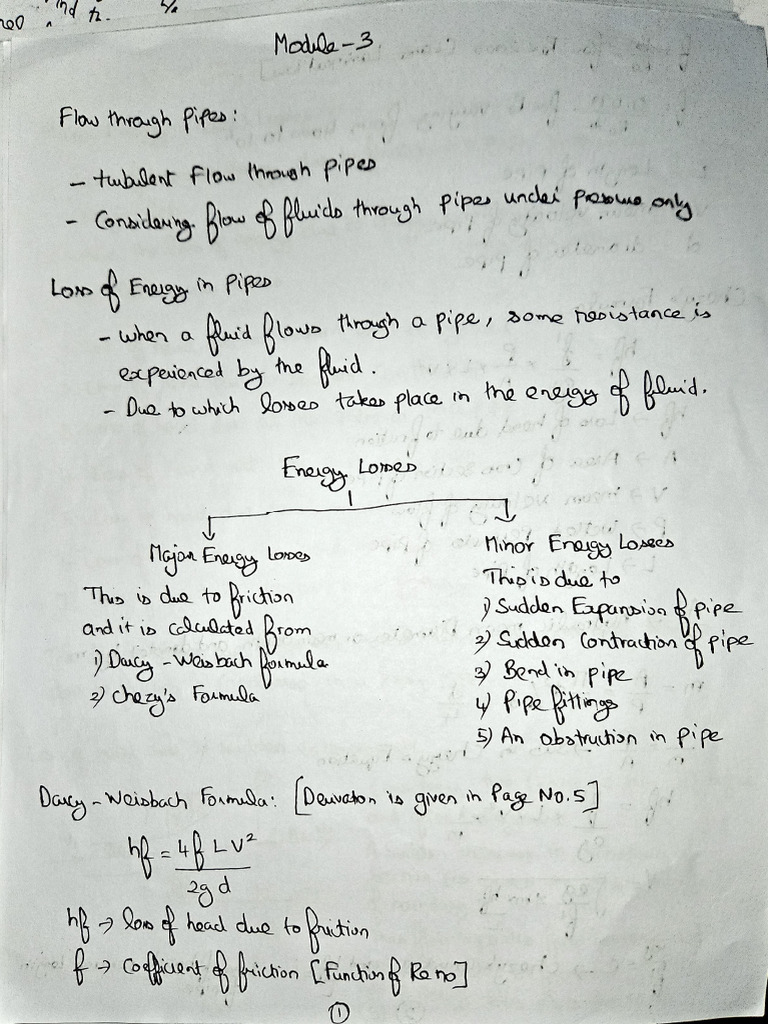 nd
Module-3
Flow through Pipes:
- turbulent Flow through pipes
- Considering flow of fluids through pipes under pressure only
Loss of Energy in Pipes
- when a fluid flows through a pipe, some resistance is
experienced by the fluid.
- Due to which losses takes place in the energy of fluid.
Energy Losses
Major Energy Losses
This is due to friction
and it is calculated from
1) Darcy-Weisbach formula
2) Chezy's Formula
Minor Energy Losses
This is due to
1) Sudden Expansion of pipe
2) Sudden Contraction of pipe
3) Bend in pipe
4) Pipe fittings
5) An obstruction in pipe
Darcy-Weisbach Formula: [Derivaton is given in Page No.5]
hf = 4f L V²
2g d
hf → loss of head due to friction
f → Coefficient of friction [Function of Re no]
1